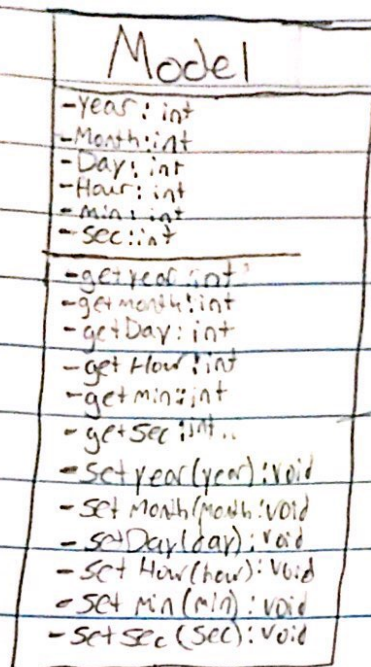 Model
-year: int
-Month:int
-Day: int
-Hour: int
-min: int
-sec:int
-getyear:int
-getmonth:int
-getDay: int
-get Hour:int
-getmin:int
-getsec:int..
-setyear(year):void
-set Month(Month:void
-setDay(day): void
-set Hour(hour): void
-set min(min): void
-setsec(sec): void